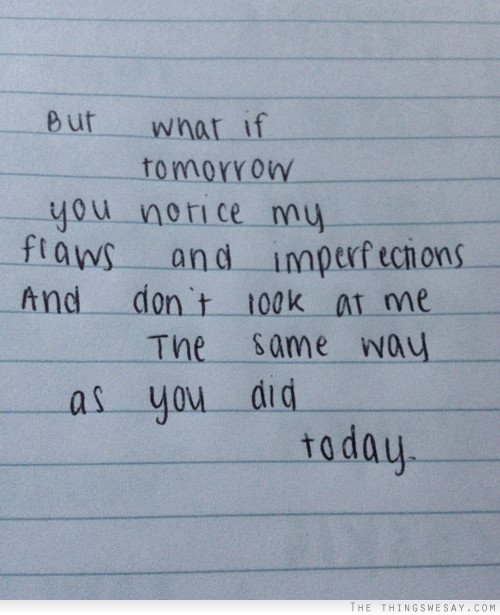 But what if
tomorrow
you notice my
flaws and imperfections
And don't look at me
The same way
as you did
today.
THE THINGSWESAY.COM